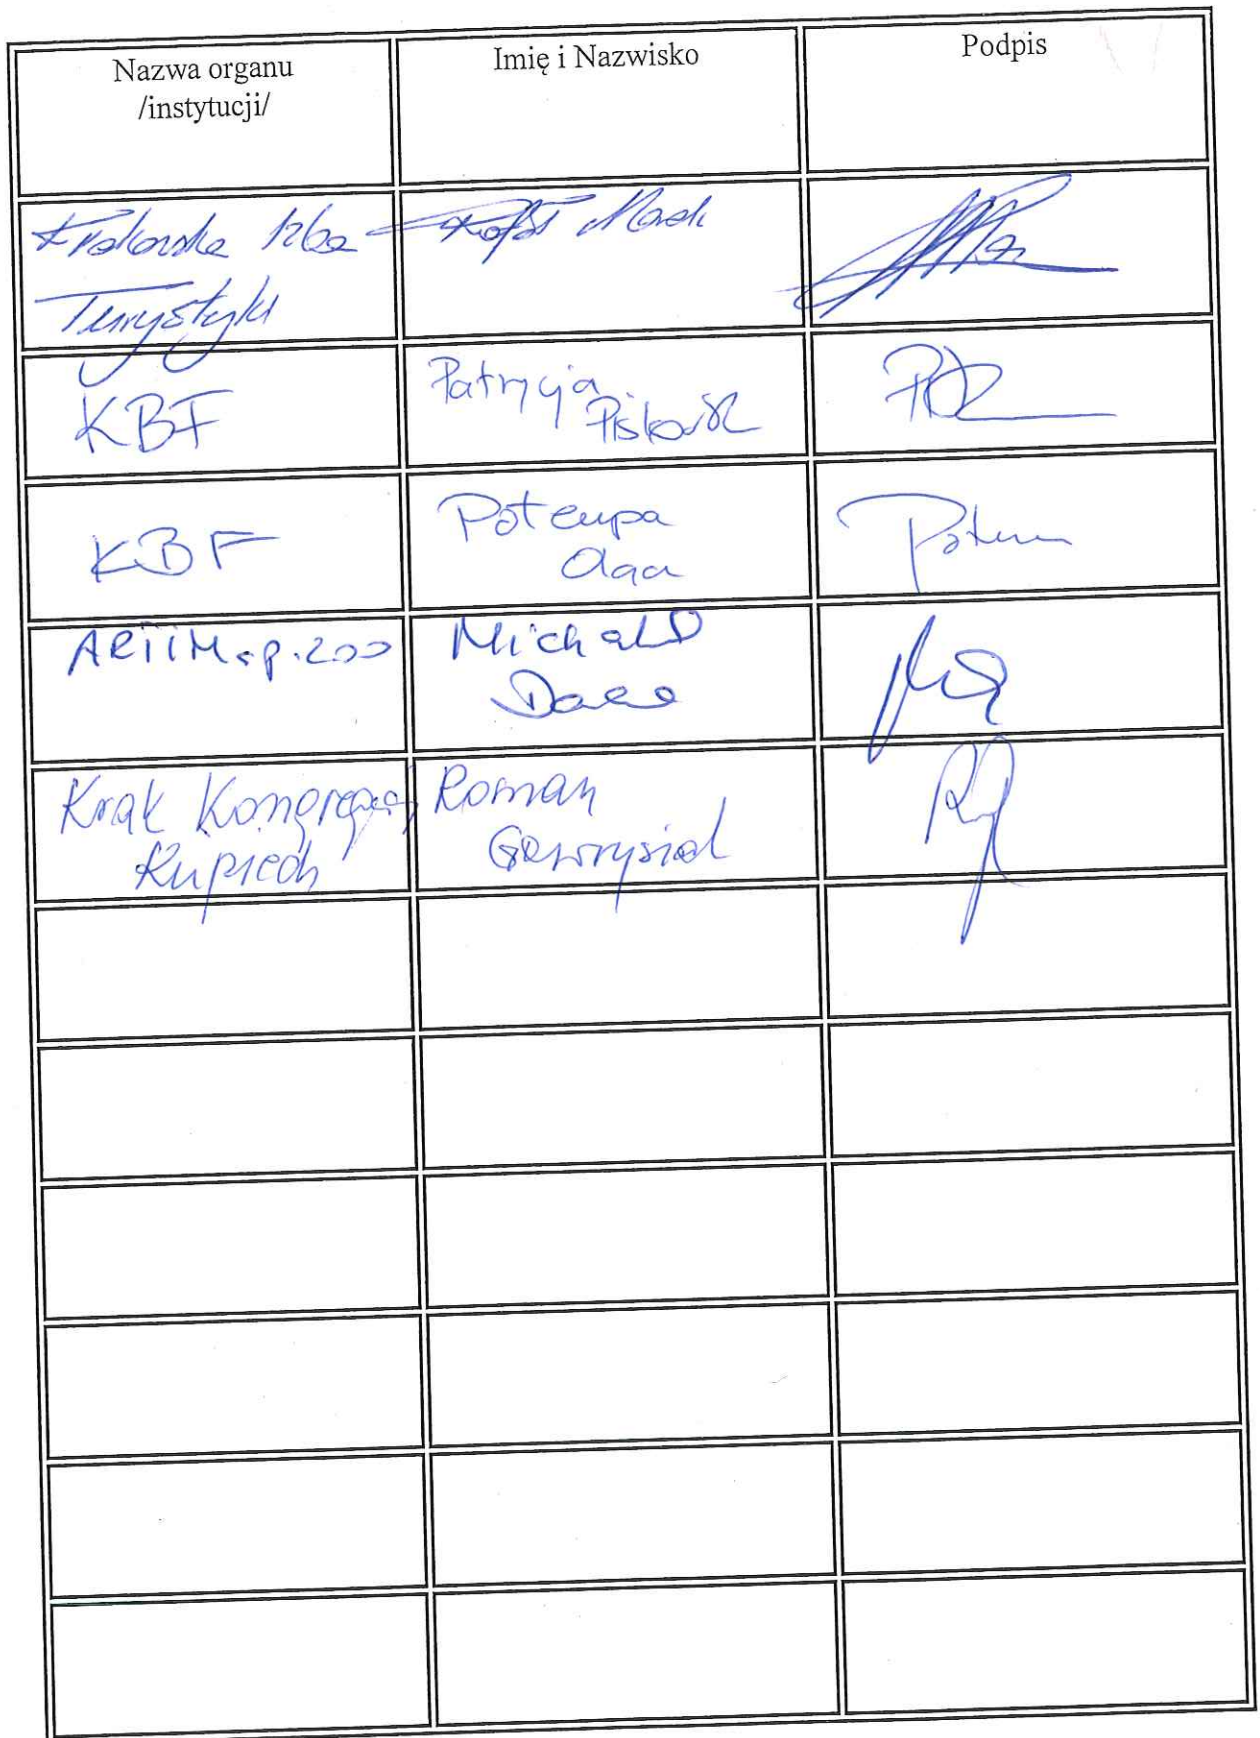 Nazwa organu
/instytucji/
Imię i Nazwisko
Podpis
Krakowska Izba
Turystyki
Rafał Marek
KBF
Patrycja
KBF
Potempa
Olga
ARiiM sp. zoo
Michał
Krak Kongregacj
Kupiech
Roman
Gawrysiak